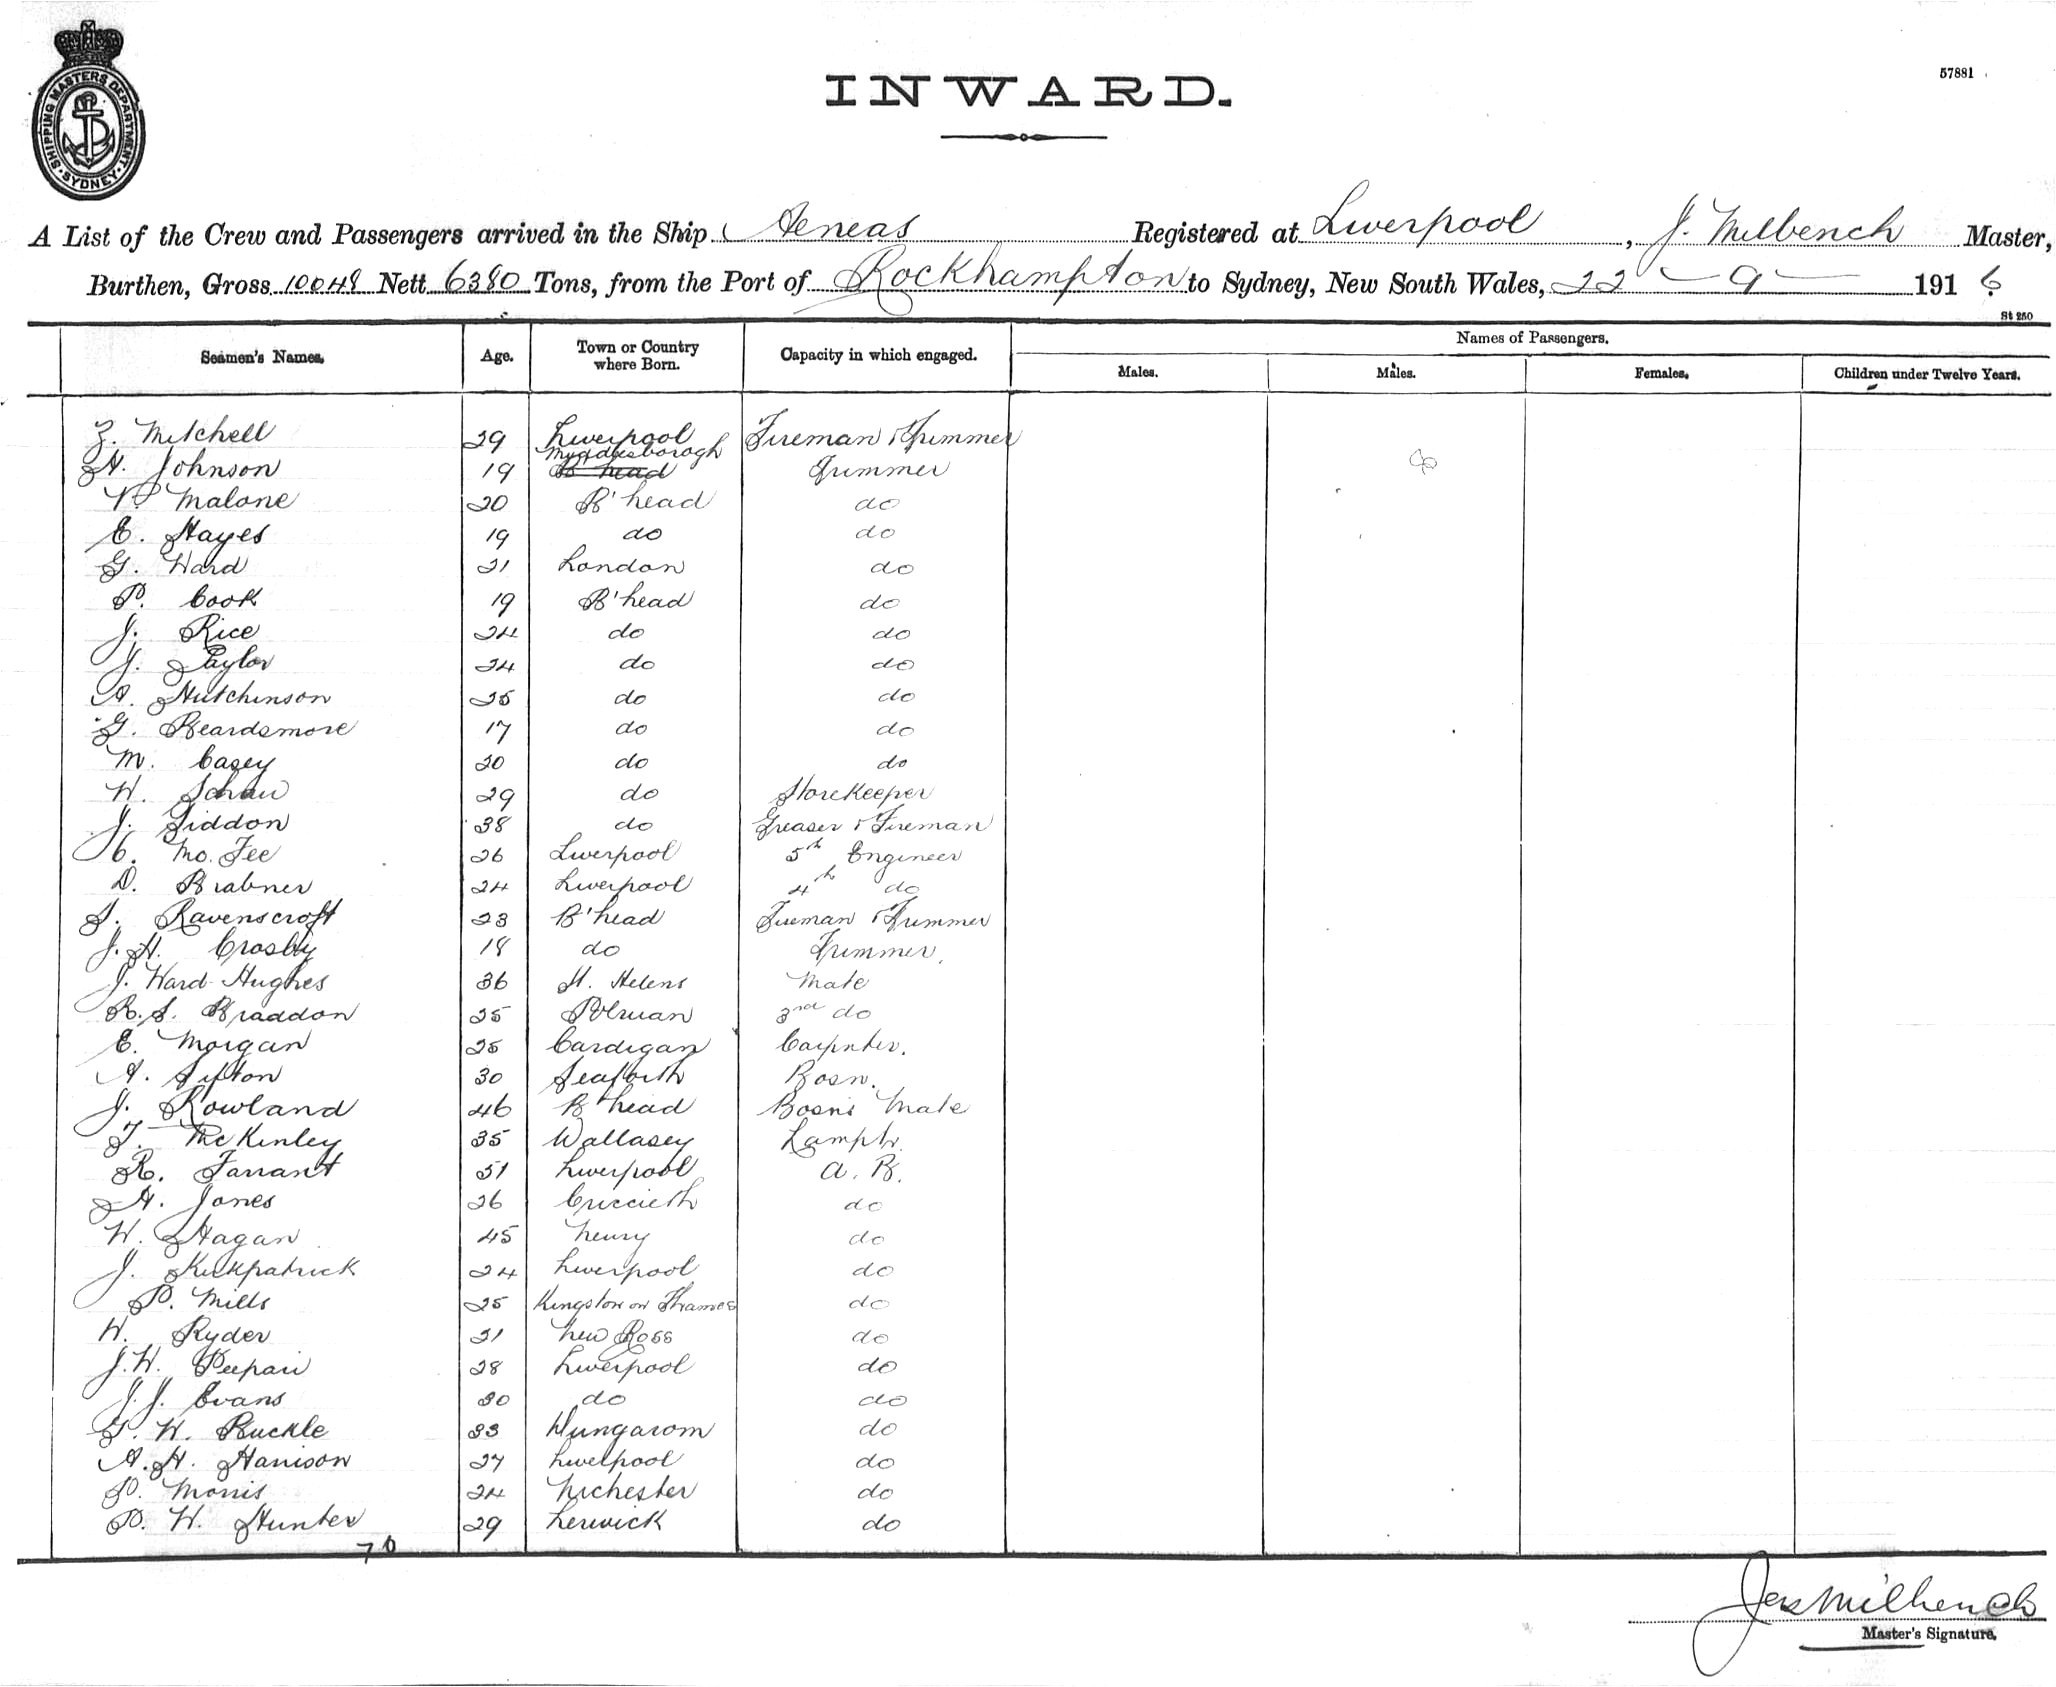 SHIPPING MASTERS DEPARTMENT SYDNEY
57881
INWARD.
A List of the Crew and Passengers arrived in the Ship Aeneas Registered at Liverpool, J. Milbench Master,
Burthen, Gross 10048 Nett 6380 Tons, from the Port of Rockhampton to Sydney, New South Wales, 22 - 9 - 1916
St 250
Seamen's Names. Age. Town or Country where Born. Capacity in which engaged. Names of Passengers.
Males. Males. Females. Children under Twelve Years.
Mitchell 29 Liverpool Fireman & Trimmer
Middlesborogh
H. Johnson 19 B'head Trimmer
Malone 20 B'head do
E. Hayes 19 do do
G. Ward 21 London do
P. Cook 19 B'head do
J. Rice 24 do do
J. Taylor 24 do do
A. Hutchinson 25 do do
G. Beardsmore 17 do do
M. Casey 20 do do
W. 29 do Storekeeper
J. Siddon 38 do Greaser & Fireman
C. Mc. Fee 26 Liverpool 5th Engineer
D. Brabner 24 Liverpool 4th do
S. Ravenscroft 23 B'head Fireman & Trimmer
J. H. Crosby 18 do Trimmer.
J. Ward-Hughes 36 St. Helens Mate
R. S. Braddon 25 Polruan 3rd do
E. Morgan 25 Cardigan Carpnter.
A. Sefton 30 Seaforth Bosn.
J. Rowland 46 B'head Bosn's Mate
T. McKinley 35 Wallasey Lamptr.
R. Tarrant 51 Liverpool A. B.
H. Jones 26 Criccieth do
W. Hagan 45 Newry do
J. Kirkpatrick 24 Liverpool do
P. Mills 25 Kingston on Thames do
W. Ryder 21 New Ross do
J. W. 28 Liverpool do
J. J. Evans 30 do do
T. W. Buckle 33 do
A. H. Harrison 27 Liverpool do
P. Morris 24 do
P. W. Hunter 29 Lerwick do
70
Jas Milbench
Master's Signature.